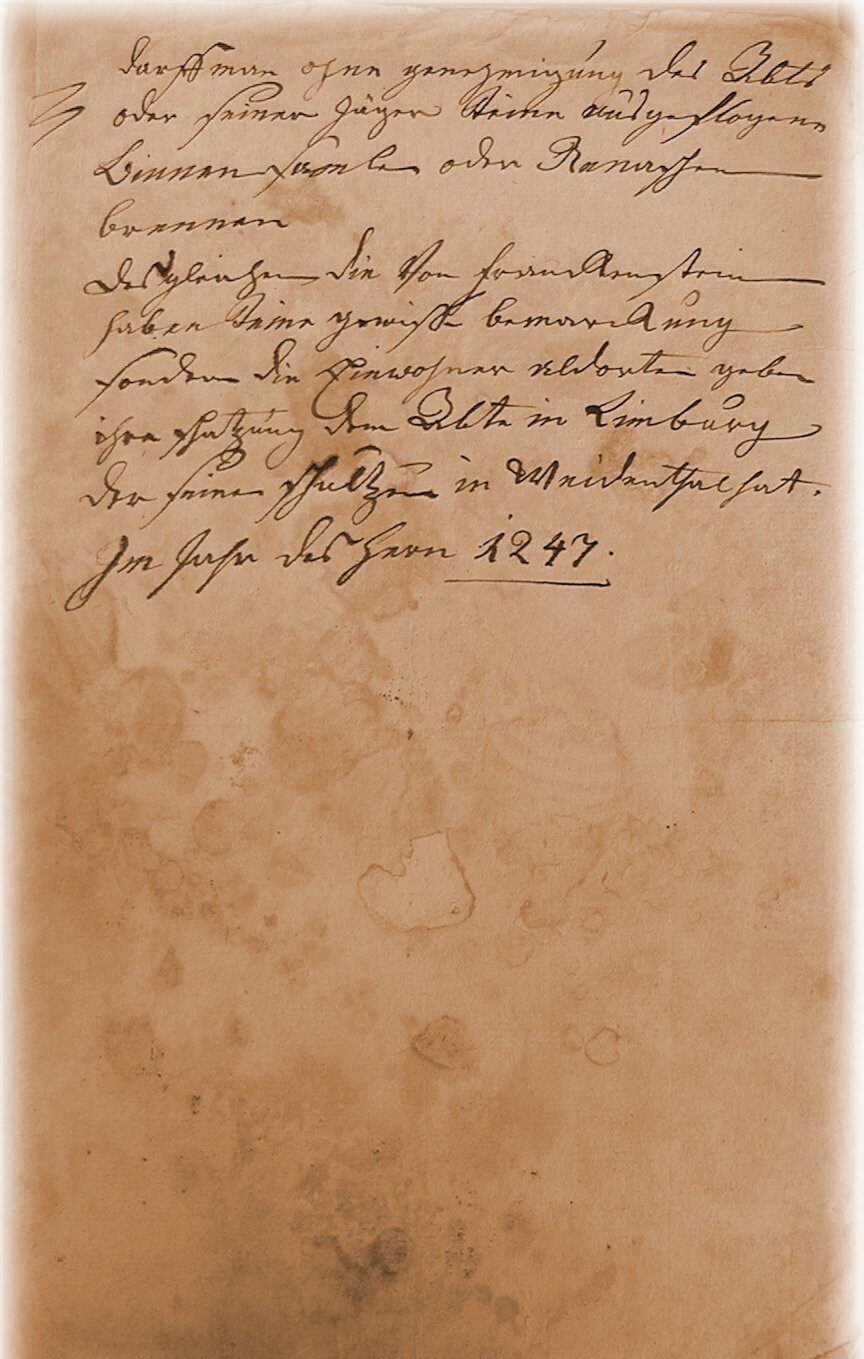 darff man ohne genehmigung des Abts
oder seiner Jäger keine ausgeflogene
Binnen samlen oder
brennen
Desgleichen die Von Franckenstein
haben keine gewisse bemarckung
sondern die Einwohner aldorten geben
ihre schatzung dem Abte in Limburg
der seinen schultzen in Weidenthal hat.
Im Jahr des Hern 1247.